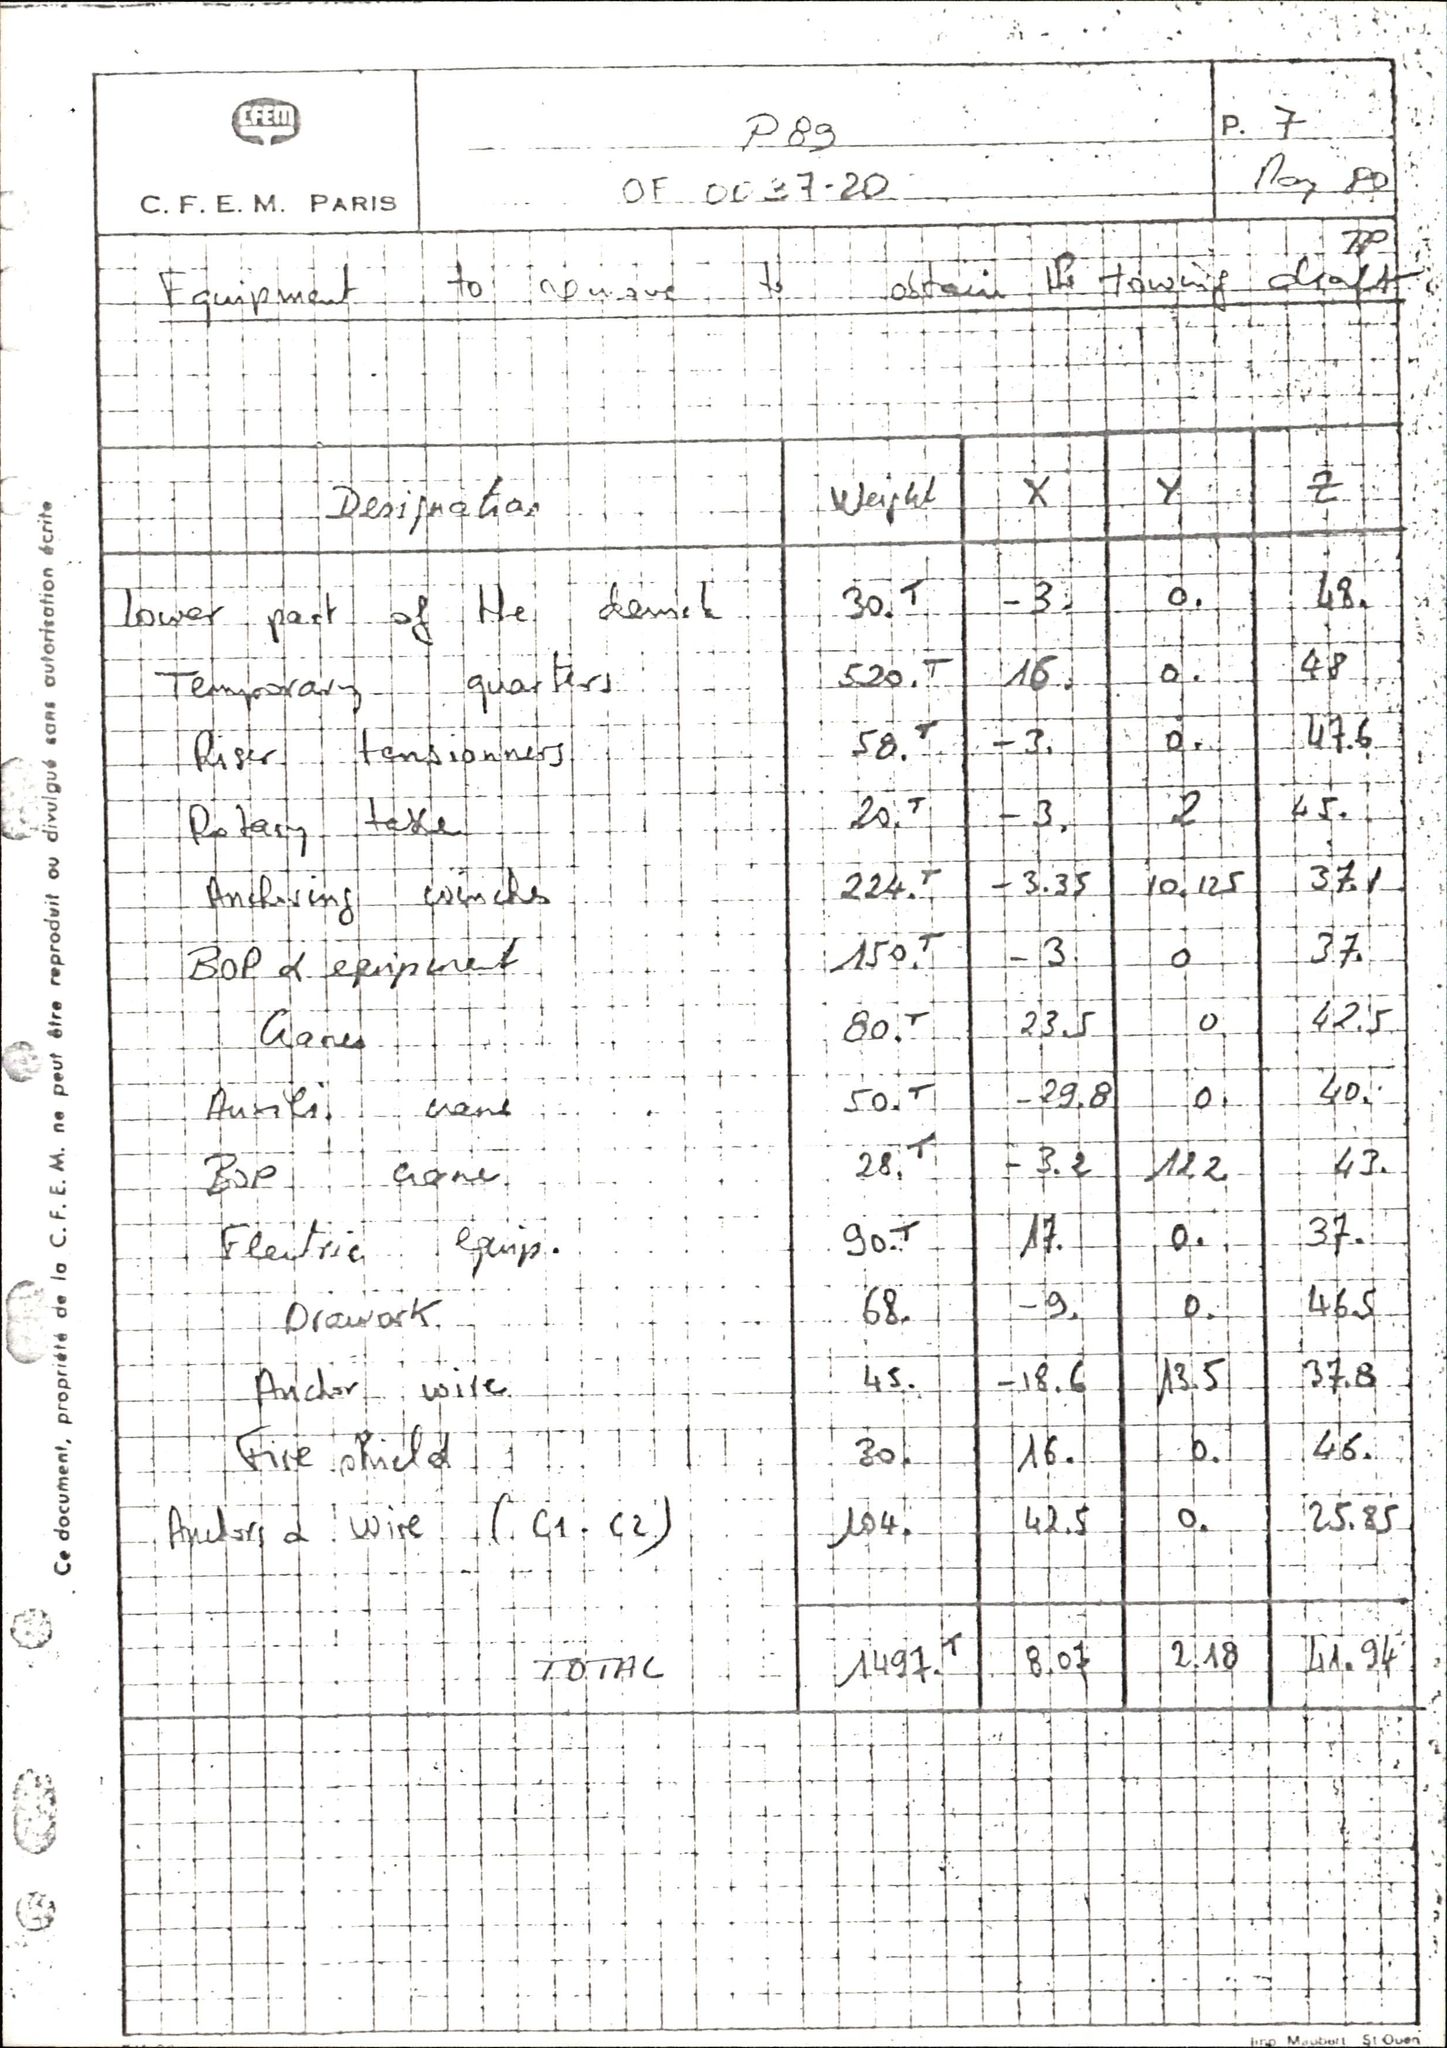 CFEM
C. F. E. M. PARIS
P89
OF 0037-20
P. 7
May 80
Equipment to remove to obtain the towing draft
Designation Weight X Y Z
lower part of the derrick 30.T -3. 0. 48.
Temporary quarters 520.T 16. 0. 48
Riser tensionners 58.T -3. 0. 47.6
Rotary table 20.T -3. 2 45.
Anchoring winches 224.T -3.35 10.125 37.1
BOP & equipment 150.T -3 0 37.
Cranes 80.T 23.5 0 42.5
Auxili. crane 50.T -29.8 0. 40.
BOP crane 28.T -3.2 12.2 43.
Electric equip. 90.T 17. 0. 37.
Drawork 68. -9. 0. 46.5
Anchor wire 45. -18.6 13.5 37.8
Fire shield 30. 16. 0. 46.
Anchors & wire (C1. C2) 104. 42.5 0. 25.85
TOTAL 1497.T 8.07 2.18 41.94
Ce document, propriété de la C. F. E. M. ne peut être reproduit ou divulgué sans autorisation écrite
Imp. Maubert St Ouen